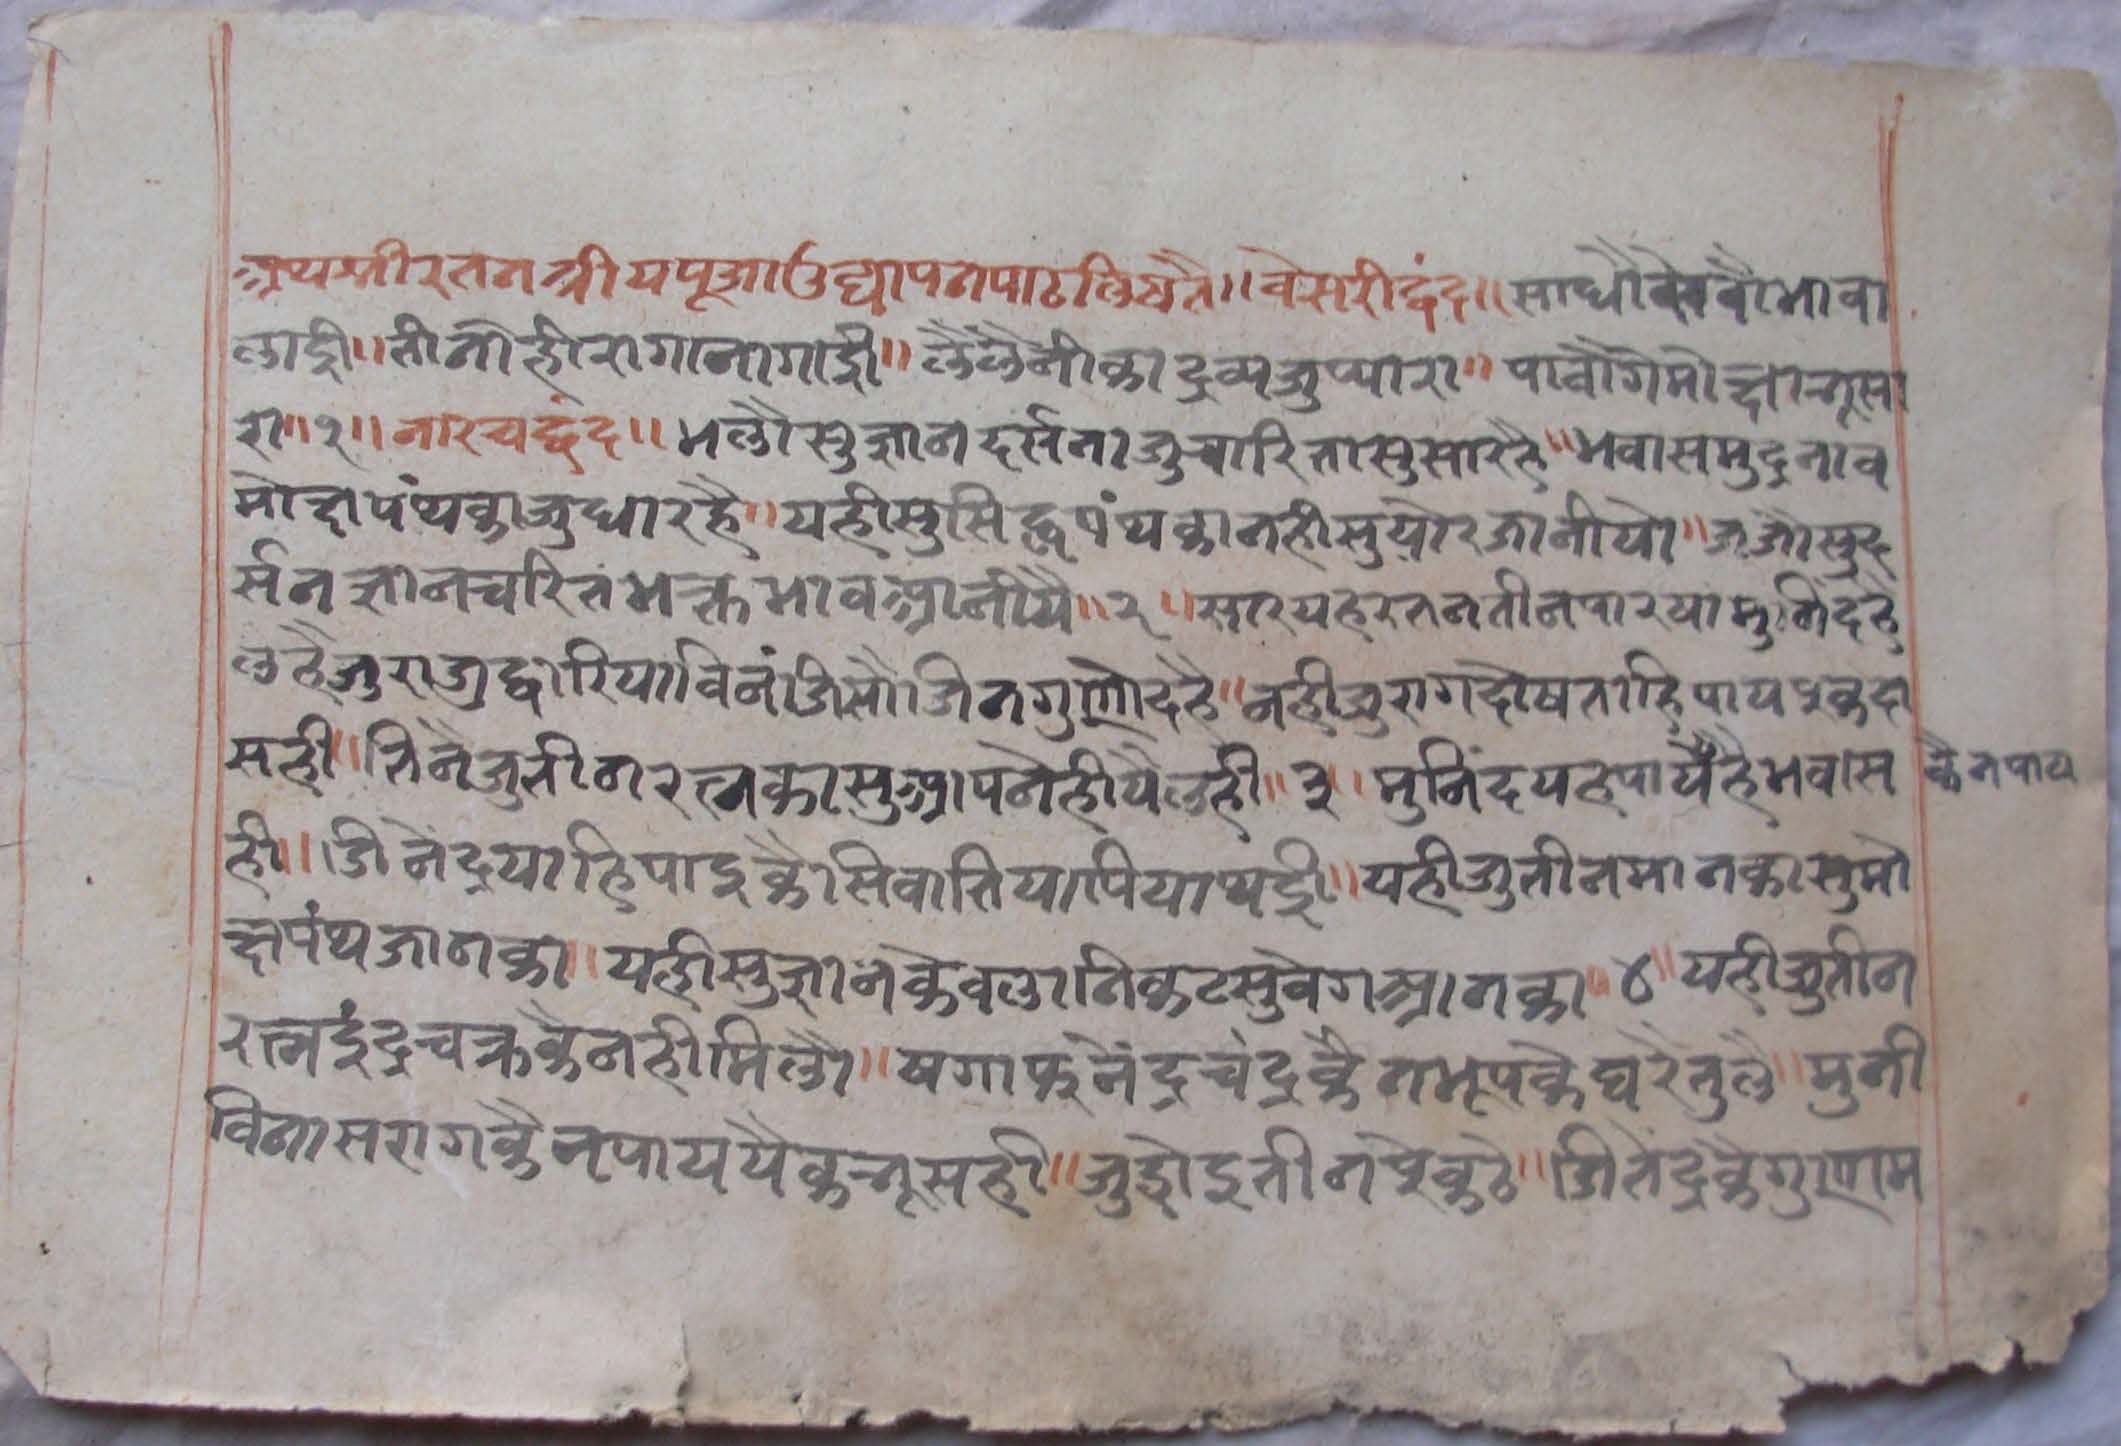 अथ श्रीरतनत्रीयपूजाउद्यापनपाठलिष्यते ॥ वेसरीछंद ॥ साधौ भावा
लाई ॥ तीनो ही रागानागाई ॥ लैलै नीका द्रव्य जु प्यारा ॥ पावौगे मोक्षा
रा ॥ १ ॥ नारचछंद ॥ भलौ सुज्ञान दर्सना जु चारिता सुसार है ॥ भवा समुद्र नाव
मोक्ष पंथ का जु धार है ॥ यही सुसिद्ध पंथ का नही सु जानीयो ॥ जजौ सुद
र्सन ज्ञान चरित भक्त भाव आनीयै ॥ २ ॥ सार यह रतन तीन पार या मुनिंद है
लहै जु रा विनं जिसौ जिन गुणोद है ॥ नही जु राग दोष ताहि पाय
सही ॥ तिनै जु तीन रत्न का सु ही यै लही ॥ ३ ॥ मुनिंद यह पायैहै भवास
कै न पाय
ही ॥ जिनेंद्र याहि पाइकै सिवा तिया पिया थई ॥ यही जु तीन मानका सुमो
क्ष पंथ जानका ॥ यही सुज्ञान केवला निकट सुवेग आनका ॥ ४ ॥ यही जु तीन
रत्न इंद्र चक्र कै नही मिलौ ॥ षगा फनेंद्र चंद्र कै न भूप के घरै तुलै ॥ मुनी
विना सराग कै न पाय यै सही ॥ तीन ॥ जिनेंद्र कै गुणाम